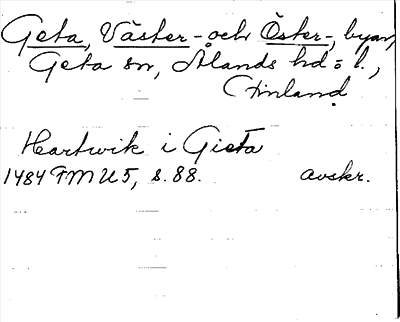 Geta, Väster- och Öster-, byar,
Geta sn, Ålands hd o l.,
Finland
Hartwik i Gieta
1484 FMU 5, s. 88. avskr.